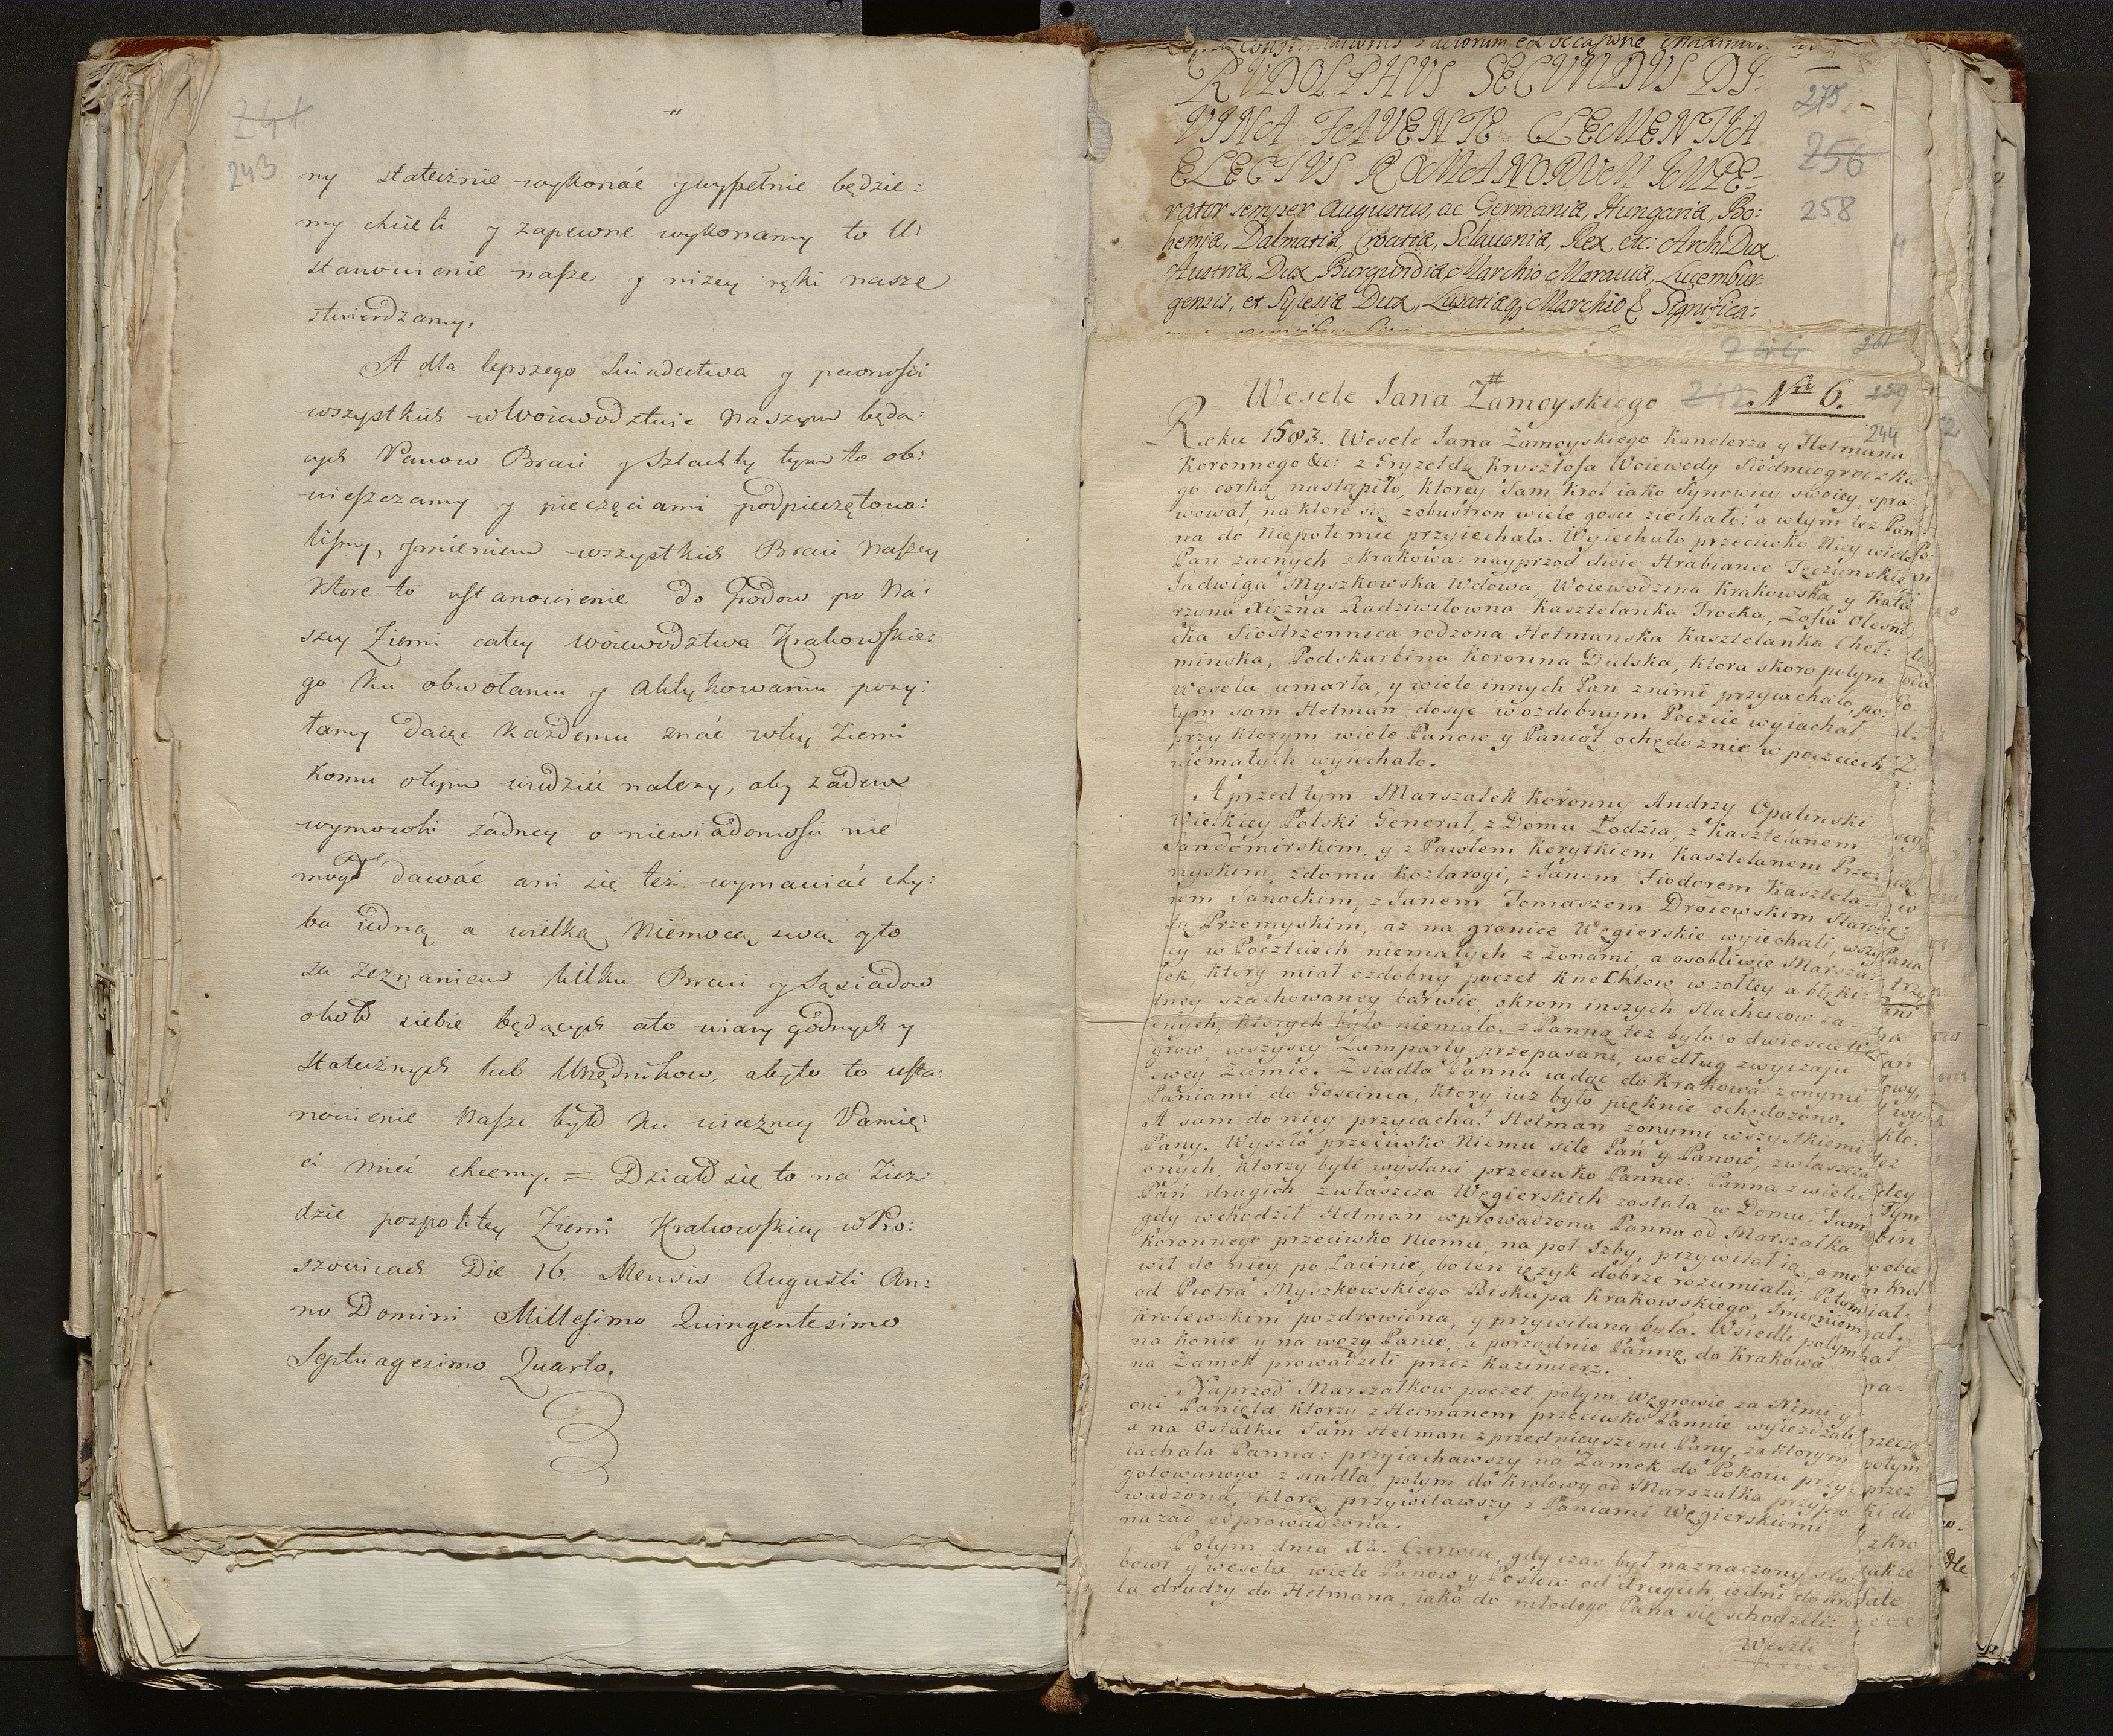 241
243
ny statecznie wykonać y wypełnie będzie:
my chcieli y zapewne wykonamy to U:
stanowienie nasze y niżey ręki nasze
stwierdzamy.
A dla lepszego Swiadectwa y pewności
wszystkich w Woiewodztwie Naszym będą:
cych Panow Braci y Szlachty tym to ob:
wieszczamy y pieczęciami podpieczętowa:
liśmy, Jmieniem wszystkich Braci Naszey
Ktore to ustanowienie do Grodow po Na:
szey Ziemi całey woiewodztwa Krakowskie:
go Ku obwołaniu y Aktykowaniu posy:
łamy daiąc Każdemu znać w tey Ziemi
komu o tym wiedzieć należy, aby żaden
wymowki żadney o niewiadomości nie
mogł dawać ani się też wymawiać chy:
ba iedną a wielką Niemocą swą y to
za zeznaniem kilku Braci y Sąsiadow
około siebie będących a to wiary godnych y
statecznych lub Urzędnikow, aby to to usta:
nowienie Nasze było Ku wieczney Pamię:
ci mieć chcemy. = Działo się to na Ziez:
dzie pospolitey Ziemi Krakowskiey w Pro:
szowicach Die 16. Mensis Augusti An:
no Domini Millesimo Quingentesimo
Septuagesimo Quarto.
RVDOLPHVS SECVNDVS DI-
VINA FAVENTE CLEMENTIA
ELECTVS ROMANORVM IMPE-
rator semper Augustus, ac Germaniæ, Hungariæ, Bo:
hemiæ, Dalmatiæ, Croatiæ, Sclauoniæ, Rex etc: ArchiDux
Austriæ, Dux Burgundiæ Marchio Morauiæ, Lucembur-
gensis, et Sylesiæ Dux, Lusatiæq Marchio & Significa:
275
256
258
244
261
Wesele Jana Zamoyskiego 242 Nro 6. 259
244
Roku 1583. Wesele Jana Zamoyskiego Kanclerza y Hetmana
Koronnego &c: z Gryzeldą Krysztofa Woiewody Siedmiogrodzkie
go corką nastąpiło, ktorey Sam Krol iako Synowicy swoiey, spra
wował, na ktore się zobustron wiele gosci ziechało: a wtym też Pan
na do Niepołomic przyiechała. Wyiechało przeciwko Niey wiele
Pan zacnych z Krakowa: nayprzod dwie Hrabiance Tęczynskie
Jadwiga Myszkowska Wdowa, Woiewodzina Krakowska y Kata
rzyna Xiężna Radziwiłowna Kasztelanka Trocka, Zofia Olesni
cka Siostrzennica rodzona Hetmanska Kasztelanka Cheł:
minska, Podskarbina Koronna Dulska, ktora skoro potym
Weselu umarła, y wiele innych Pan z nimi przyiachało, po-
tym sam Hetman dosyc w ozdobnym Poczcie wyiachał,
przy ktorym wiele Panow y Paniąt ochędożnie w poczciech
niemałych wyiechało.
A przed tym Marszałek Koronny Andrzy Opalinski
Wielkiey Polski Generał, z Domu Łodzia, z Kasztelanem
Sandomirskim, y z Pawłem Korytkiem Kasztelanem Prze-
myskim, z domu Kozlarogi, z Janem Fiodorem Kasztela-
nem Sanockim, z Janem Tomaszem Droiewskim Staro-
stą Przemyskim, aż na granice Węgierskie wyiechali, wszy
cy w Pocztciech niemałych z Żonami, a osobliwie Marsza-
łek, ktory miał ozdobny poczet Knechtow w żołtey a błęki-
tney szachowaney barwie, okrom inszych Slachcicow za-
cnych, ktorych było niemało. z Panną też było o dwiescie Wę
grow, wszyscy Lamparty przepasani, według zwyczaju
swey Ziemie. Zsiadła Panna iadąc do Krakowa z onymi
Paniami do Goscinca, ktory iuż było pięknie ochędożono.
A sam do niey przyiachał Hetman z onymi wszystkiemi
Pany. Wyszło przeciwko Niemu siłe Pań y Panow, zwłaszcza
onych, ktorzy byli wysłani przeciwko Pannie: Panna z wielu
Pań drugich zwłaszcza Węgierskich została w Domu. Tam
gdy wchodził Hetman wprowadzona Panna od Marszałka
Koronnego przeciwko Niemu, na poł Izby, przywitał ią, a mo
wił do niey po Łacinie, bo ten ięzyk dobrze rozumiała; Potym
od Piotra Myszkowskiego Biskupa Krakowskiego, Jmieniem
Krolowskim pozdrowiona, y przywitana była. Wsiedli potym
na Konie y na wozy Panie, a porządnie Pannę do Krakowa
na Zamek prowadzili przez Kazimierz.
Naprzod Marszałkow poczet, potym Węgrowie za Nimi y
oni Panięta ktorzy z Hetmanem przeciwko Pannie wyieżdżali,
a na Ostatku Sam Hetman z przednieyszemi Pany, za ktorym
iachała Panna: przyiachawszy na Zamek do Pokoiu przy-
gotowanego zsiadła, potym do Krolowy od Marszałka przypro-
wadzona, ktorą przywitawszy z Paniami Węgierskiemi
nazad odprowadzona.
Potym dnia 12. Czerwca, gdy czas był naznaczony slu
bowi y weselu, wiele Panow y Posłow od drugich, iedni do Kro
la, drudzy do Hetmana, iako do młodego Pana się schodzili:
Weszli